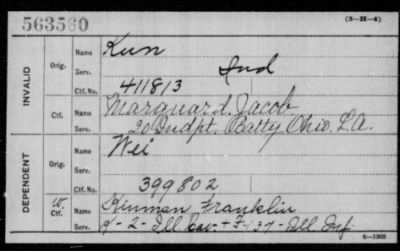 563560
(3—H—4)
INVALID
Orig.
Name
Kun
Serv.
Ind
Ctf. No.
411813
Ctf.
Name
Marquard Jacob
Serv.
20 Indpt. Batty Ohio L.A.
DEPENDENT
Orig.
Name
Wei
Serv.
Ctf. No.
399802
W.
Ctf.
Name
Hinman Franklin
Serv.
K-2-Ill Cav. + F-137-Ill Inf.
6—1360